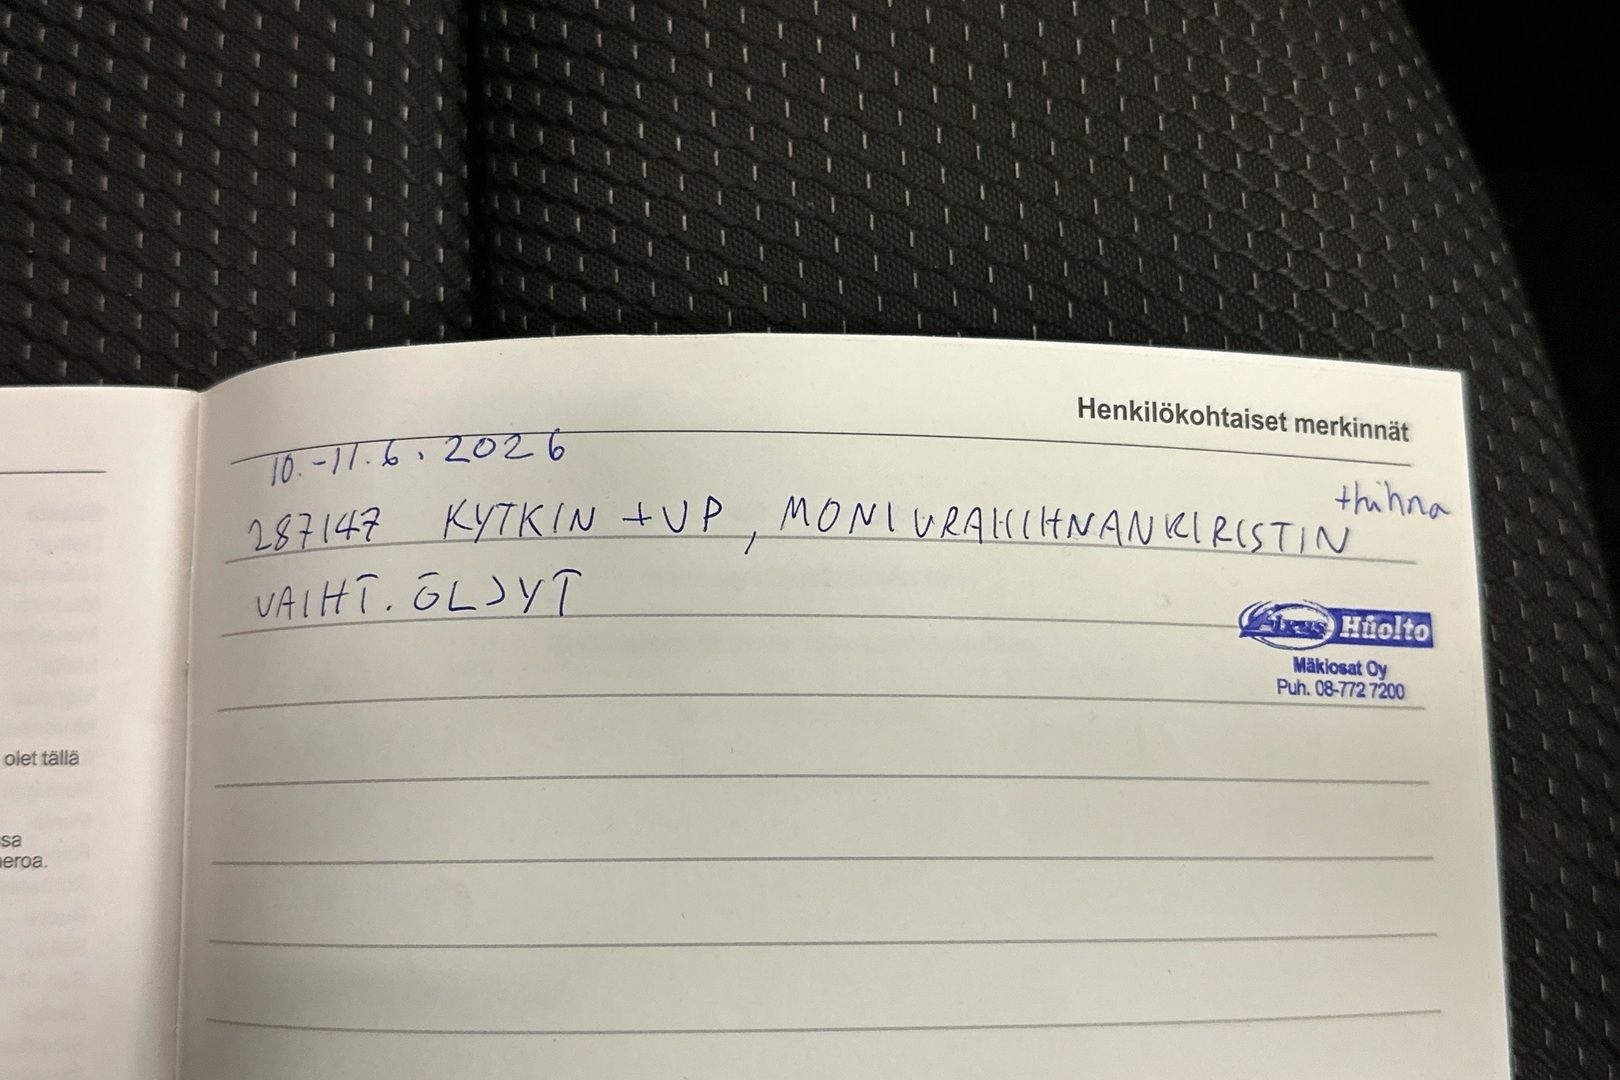 Henkilökohtaiset merkinnät
10.-11.6.2026
+hihna
287147 KYTKIN +VP, MONIURAHIHNANKIRISTIN
VAIHT. ÖLJYT
Huolto
Mäkiosat Oy
Puh. 08-772 7200
olet tällä
sa
eroa.